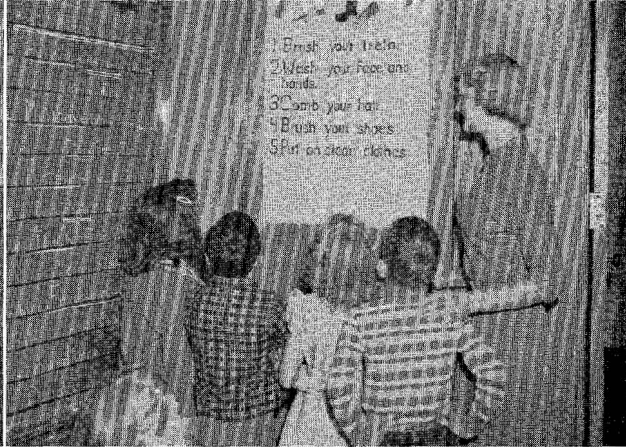 1 Brush your teeth.
2 Wash your face and
hands.
3 Comb your hair
4 Brush your shoes
5 Put on clean clothes